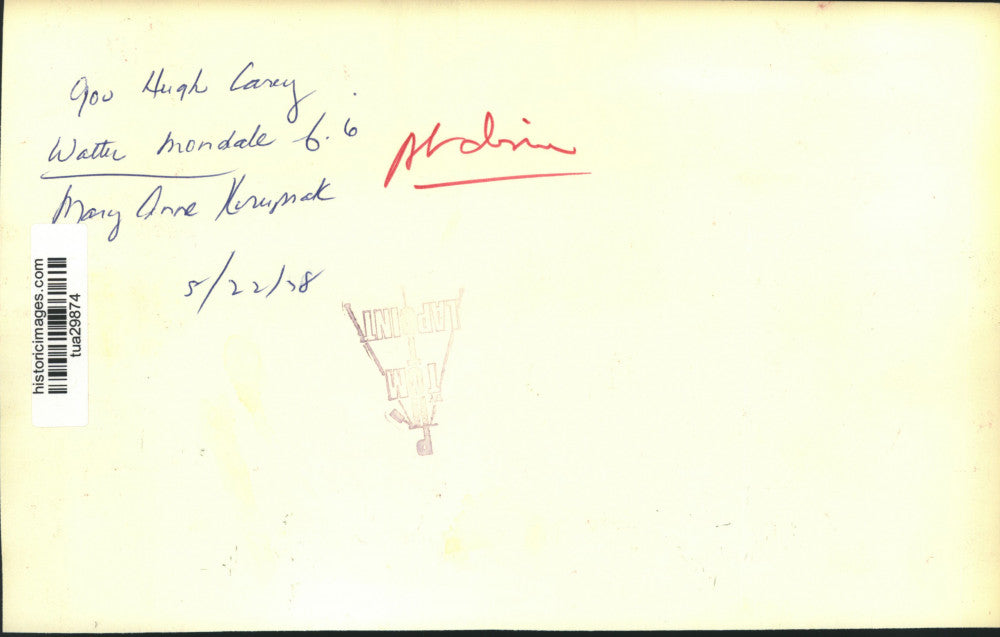 Gov Hugh Carey
Walter Mondale 6.6
Mary Anne Krupsak
5/22/78
historicimages.com
tua29874
TOM
LAPOINT